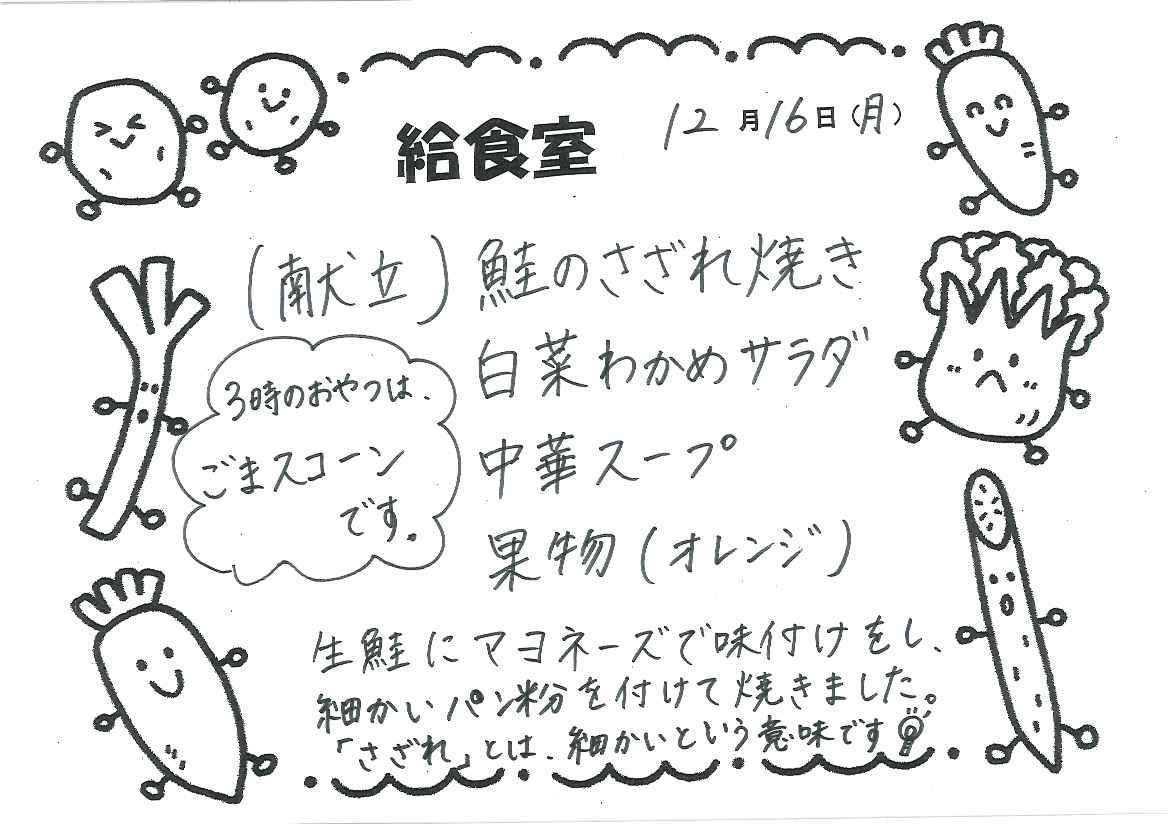 給食室
12月16日(月)
(献立)鮭のさざれ焼き
白菜わかめサラダ
中華スープ
果物(オレンジ)
3時のおやつは、
ごまスコーン
です。
生鮭にマヨネーズで味付けをし、
細かいパン粉を付けて焼きました。
「さざれ」とは、細かいという意味です